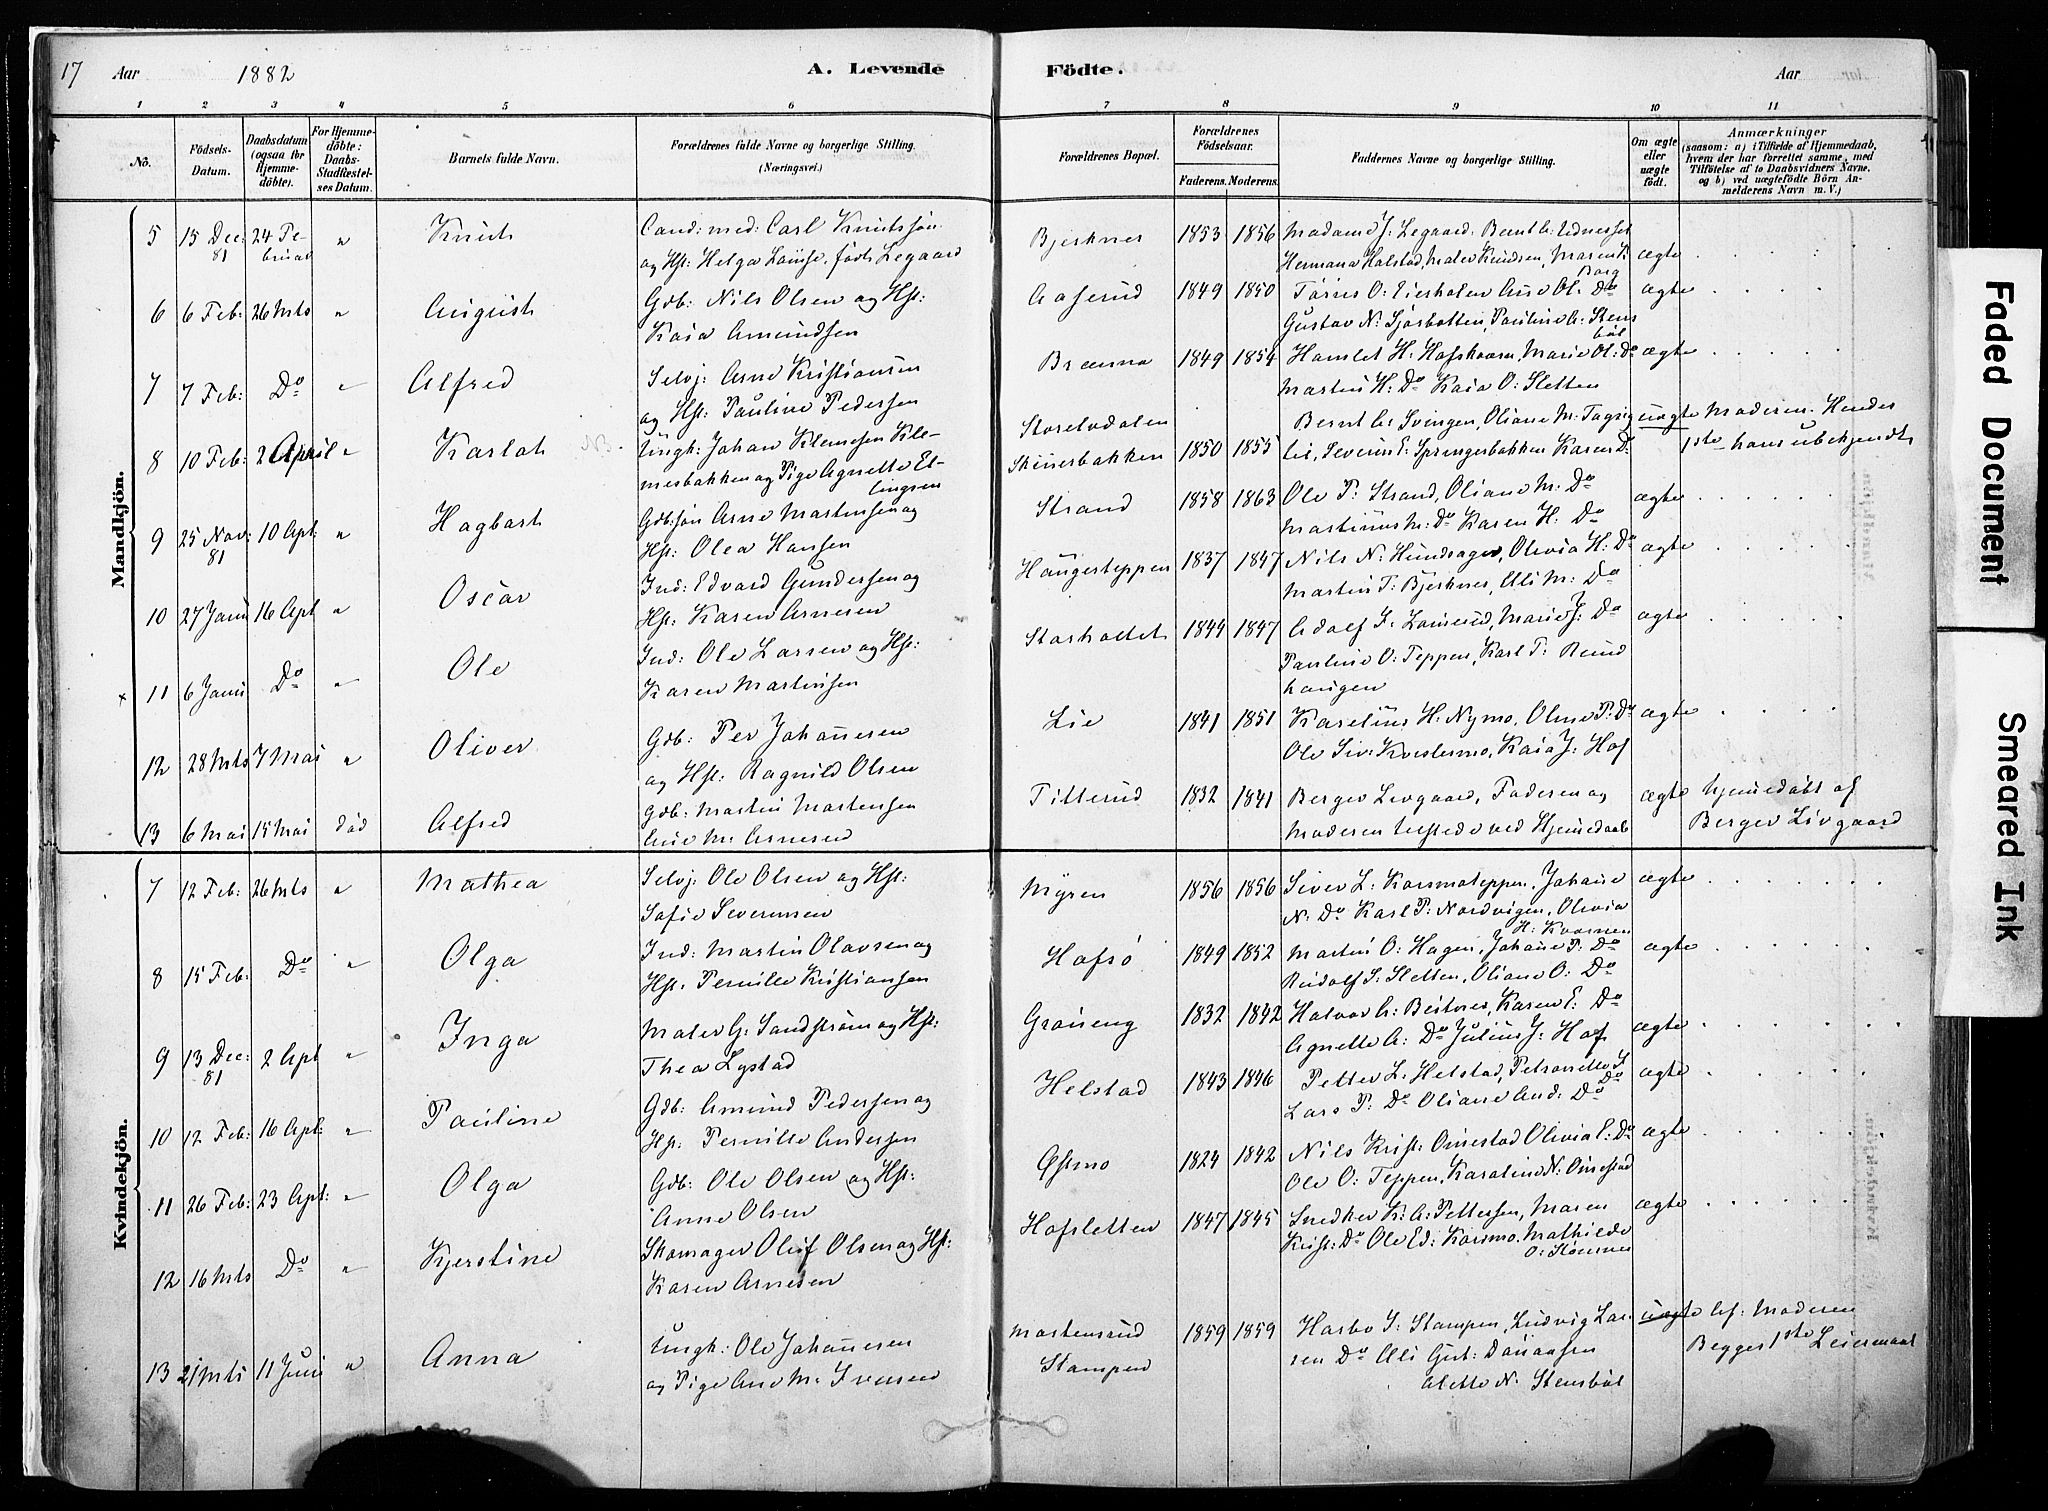 17 Aar 1882 A. Levende Födte. Aar
1 2 3 4 5 6 7 8 9 10 11
No. Födsels-Datum. Daabsdatum (ogsaa for Hjemmedöbte). For Hjemmedöbte: Daabs-Stadfæstelses Datum. Barnets fulde Navn. Forældrenes fulde Navne og borgerlige Stilling. (Næringsvei.) Forældrenes Bopæl. Forældrenes Födselsaar. Faderens. Moderens. Faddernes Navne og borgerlige Stilling. Om ægte eller uægte födt. Anmærkninger (saasom: a) i Tilfælde af Hjemmedaab, hvem der har forrettet samme, med Tilföielse af to Daabsvidners Navne, og b) ved uægtefödte Börn Anmelderens Navn m. V.)
Mandkjön.
5 15 Dec: 81 24 Februar " Knut Cand: med: Carl Knutssön Bjerknes 1853 1856 Madame J: Legaard. Bernt
og Hst: Helga Louise, födt Legaard Hermana Halstad, Mater Knudsen, Maren K. Borg ægte
6 6 Feb: 26 Mts " August Gdb: Nils Olsen og Hst: Aaserud 1849 1850 ægte
Kaia Amundsen Gustav N: Sjösbotten, Pauline A: Stensböl
7 7 Feb: Do " Alfred Selvj: Arne Kristiansen Brænna 1849 1854 Hamlet H: Hofskaarn, Marie Ol: Do ægte
og Hst: Pauline Pedersen Martin H: Do Kaia O: Sletten
8 10 Feb: 2 April " Karlot NB. Ungk: Johan Klemesen Klemesbakken og Pige Agnette Ellingsen Storelvdalen Skinerbakken 1850 1855 Bernt A: Svingen, Oliane M: uægte Moderen. Hendes
Severin E: Springerbakken Karen Do 1ste hans ubekjendt
9 25 Nov: 81 10 Apl: " Hagbart Gdb:sön Arne Martensen og Strand 1858 1863 Ole P: Strand, Oliane M: Do ægte
Hst: Olea Hansen Martinus M: Do Karen H: Do
10 27 Janu 16 Apl " Oscar Ind: Edvard Gundersen og Haugerteppen 1837 1847 Nils N: Hundsager, Olivia H: Do ægte
Hst: Karen Arnesen Martin T: Bjerknes, Eli M: Do
x 11 6 Janu Do " Ole Ind: Ole Larsen og Hst: Storholtet 1844 1847 Adolf J: Lauerud, Marie J: Do ægte
Karen Martinsen Pauline O: Teppen, Karl T: Rundhaugen
12 28 Mts 7 Mai " Oliver Gdb: Per Johannesen Lie 1841 1851 Karelius H: Nymo, Oline P: Do ægte
og Hst: Ragnild Olsen Ole Siv: Kvestermo, Kaia J: Hof
13 6 Mai 15 Mai död Alfred Gdb: Martin Martensen Titterud 1832 1841 Berger Livgaard, Faderen og ægte Hjemedöbt af
Ane M: Arnesen Moderen tilstede ved Hjemedaab Berger Livgaard
Kvindekjön.
7 12 Feb: 26 Mts " Mathea Selvj: Ole Olsen og Hst: Myren 1856 1856 Siver L: Korsmoteppen, Johane ægte
Sofie Severinsen N: Do Karl P: Nordvigen, Olivia H: Kaarnen
8 15 Feb: Do " Olga Ind: Martin Olavsen og Hofsö 1849 1852 Martin O: Hagen, Johane P: Do ægte
Hst. Pernille Kristiansen Rudolf S: Sletten, Oliane O: Do
9 13 Dec: 81 2 Apl " Inga Maler G: Sandström og Hst: Gröneng 1832 1842 Halvor A: Beitnes, Karen E: Do ægte
Thea Lystad Agnette A: Do Julius J: Hof
10 12 Feb: 16 Apl: " Pauline Gdb: Amund Pedersen og Helstad 1843 1846 Petter L: Helstad, Petronelle S Do ægte
Hst: Pernille Andersen Lars P: Do Oliane And: Do
11 26 Feb: 23 Apl: " Olga Gdb: Ole Olsen og Hst: Østmo 1824 1842 Nils Krist: Onsestad Olivia E: Do ægte
Anne Olsen Ole O: Teppen, Karoline N: Onsestad
12 16 Mts Do " Kjerstine Skomager Oluf Olsen og Hst: Hofsletten 1847 1845 Snedker K: A: Pettersen, Maren ægte
Karen Arnesen Krist: Do Ole Ed: Korsmo, Mathilde O: Stensnes
13 21 Mts 11 Juni " Anna Ungk: Ole Johannesen Martensrud 1859 1859 Harbo J: Stampen, Ludvig Larsen uægte Af: Moderen
og Pige Ane M: Iversen Stampen Do Eli Gut: Aletta N: Stensböl Begges 1ste Leiermaal
Faded Document
Smeared Ink